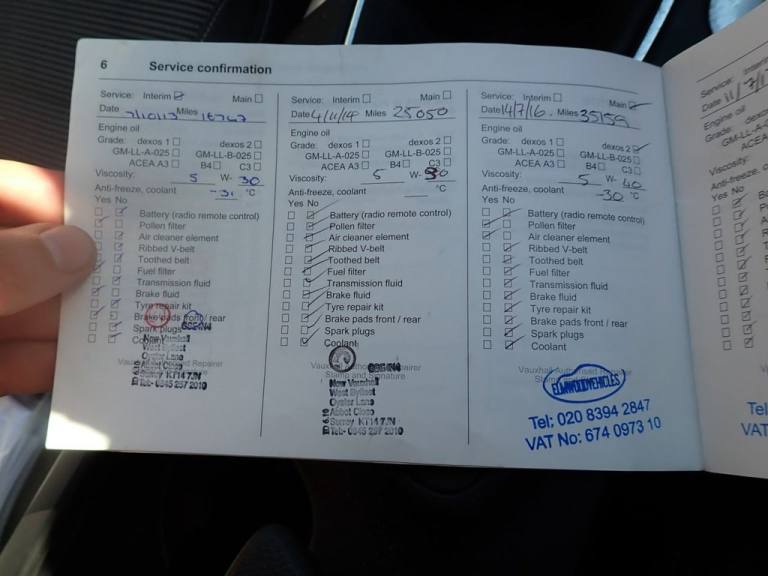 6 Service confirmation
Service: Interim Main
Date 7/10/13 Miles
Engine oil
Grade: dexos 1 dexos 2
GM-LL-A-025 GM-LL-B-025
ACEA A3 B4 C3
Viscosity: 5 W- 30
Anti-freeze, coolant -31 °C
Yes No
Battery (radio remote control)
Pollen filter
Air cleaner element
Ribbed V-belt
Toothed belt
Fuel filter
Transmission fluid
Brake fluid
Tyre repair kit
Brake pads front / rear
Spark plugs
New Vauxhall
West Byfleet
Oyster Lane
Abbot Close
Surrey KT14 7JN
Tel: 0845 257 2010
Service: Interim Main
Date 4/11/14 Miles 25050
Engine oil
Grade: dexos 1 dexos 2
GM-LL-A-025 GM-LL-B-025
ACEA A3 B4 C3
Viscosity: 5 W- 30
Anti-freeze, coolant °C
Yes No
Battery (radio remote control)
Pollen filter
Air cleaner element
Ribbed V-belt
Toothed belt
Fuel filter
Transmission fluid
Brake fluid
Tyre repair kit
Brake pads front / rear
Spark plugs
Coolant
Stamp and Signature
New Vauxhall
West Byfleet
Oyster Lane
Abbot Close
Surrey KT14 7JN
Tel: 0845 257 2010
Service: Interim Main
Date 14/7/16 Miles 35159
Engine oil
Grade: dexos 1 dexos 2
GM-LL-A-025 GM-LL-B-025
ACEA A3 B4 C3
Viscosity: 5 W- 40
Anti-freeze, coolant -30 °C
Yes No
Battery (radio remote control)
Pollen filter
Air cleaner element
Ribbed V-belt
Toothed belt
Fuel filter
Transmission fluid
Brake fluid
Tyre repair kit
Brake pads front / rear
Spark plugs
Coolant
Vauxhall Authorised Repairer
ELMWOOD VEHICLES
Tel: 020 8394 2847
VAT No: 674 0973 10
Service: Interim
Date
Engine oil
Grade:
GM-LL-A
ACEA
Viscosity:
Anti-freeze,
Yes No
Tel
VAT